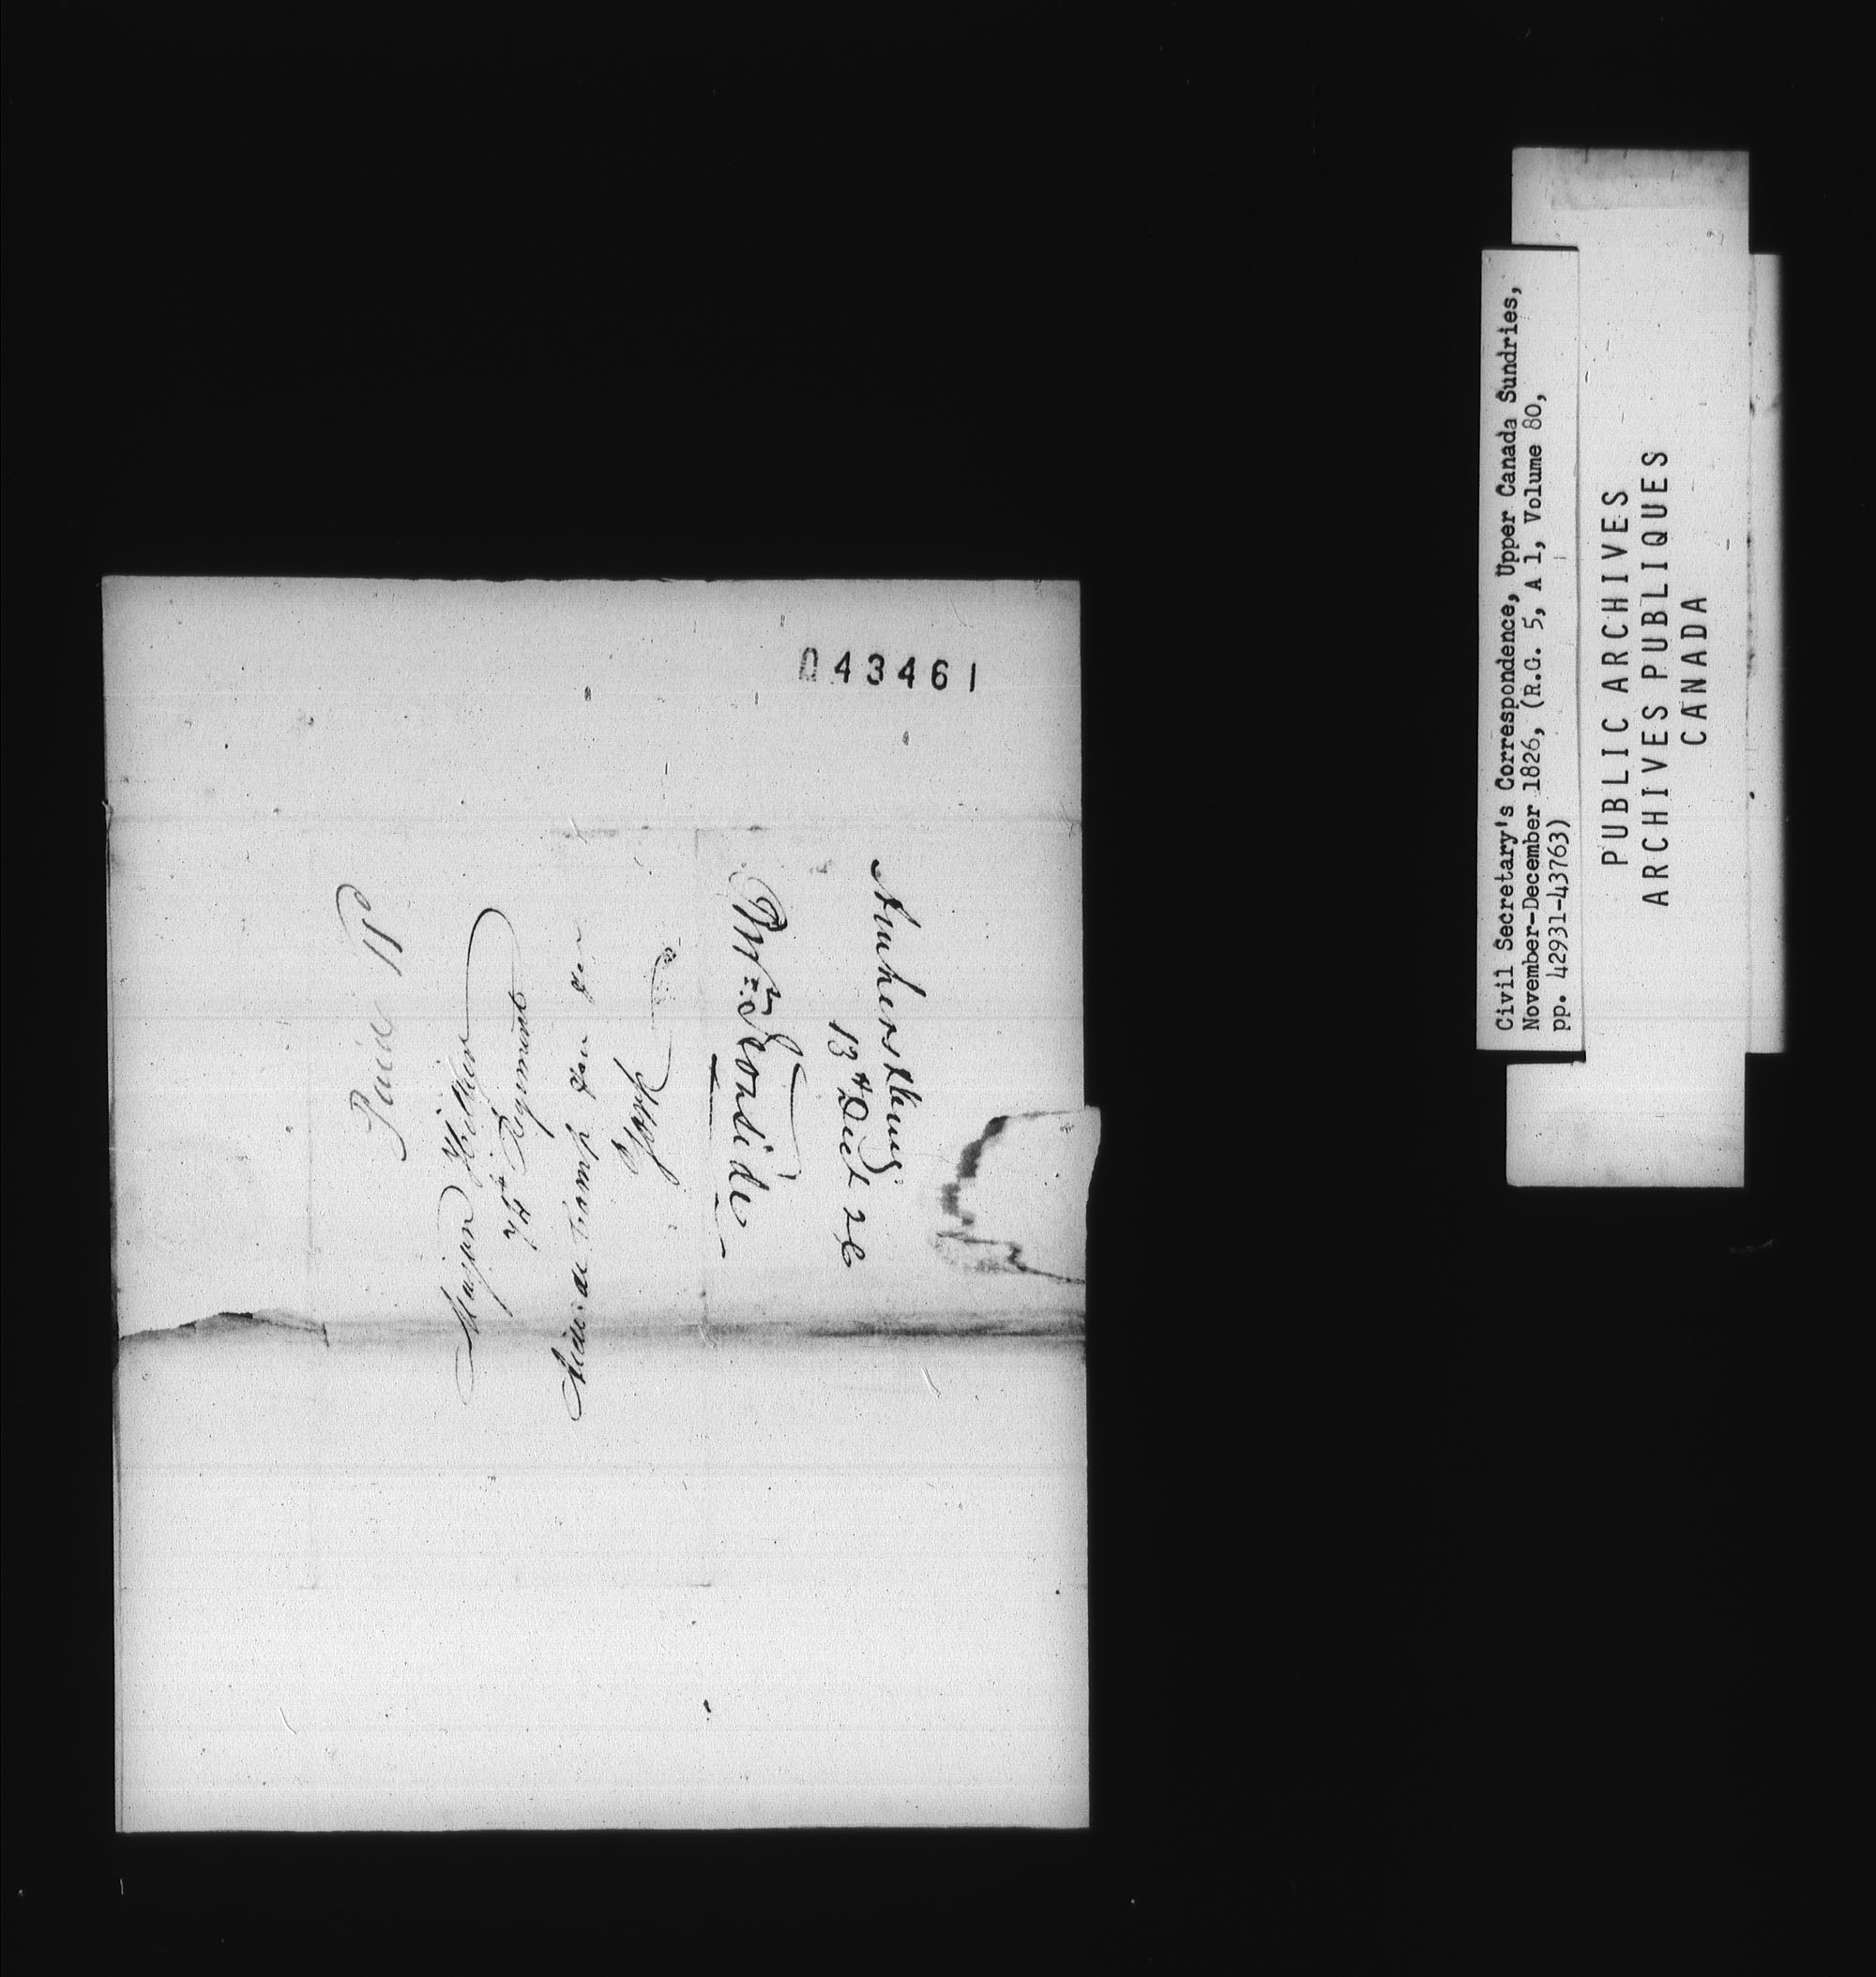 043461
Amherstburg
13th Decr 26
Mr. Ironside
Paid 11
Major Hillier
74th Regiment
Aide de Camp &ca &ca
York
Civil Secretary's Correspondence, Upper Canada Sundries,
November-December 1826, (R.G. 5, A 1, Volume 80,
pp. 42931-43763)
PUBLIC ARCHIVES
ARCHIVES PUBLIQUES
CANADA